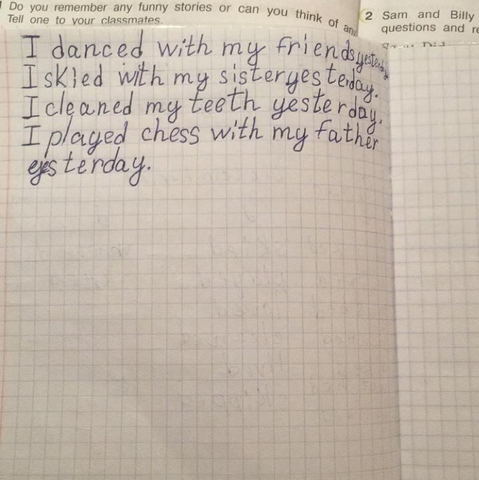 Do you remember any funny stories or can you think of any
Tell one to your classmates.
2 Sam and Billy
questions and re
I danced with my friends yesterday
I skied with my sister yesterday.
I cleaned my teeth yesterday.
I played chess with my father
yesterday.